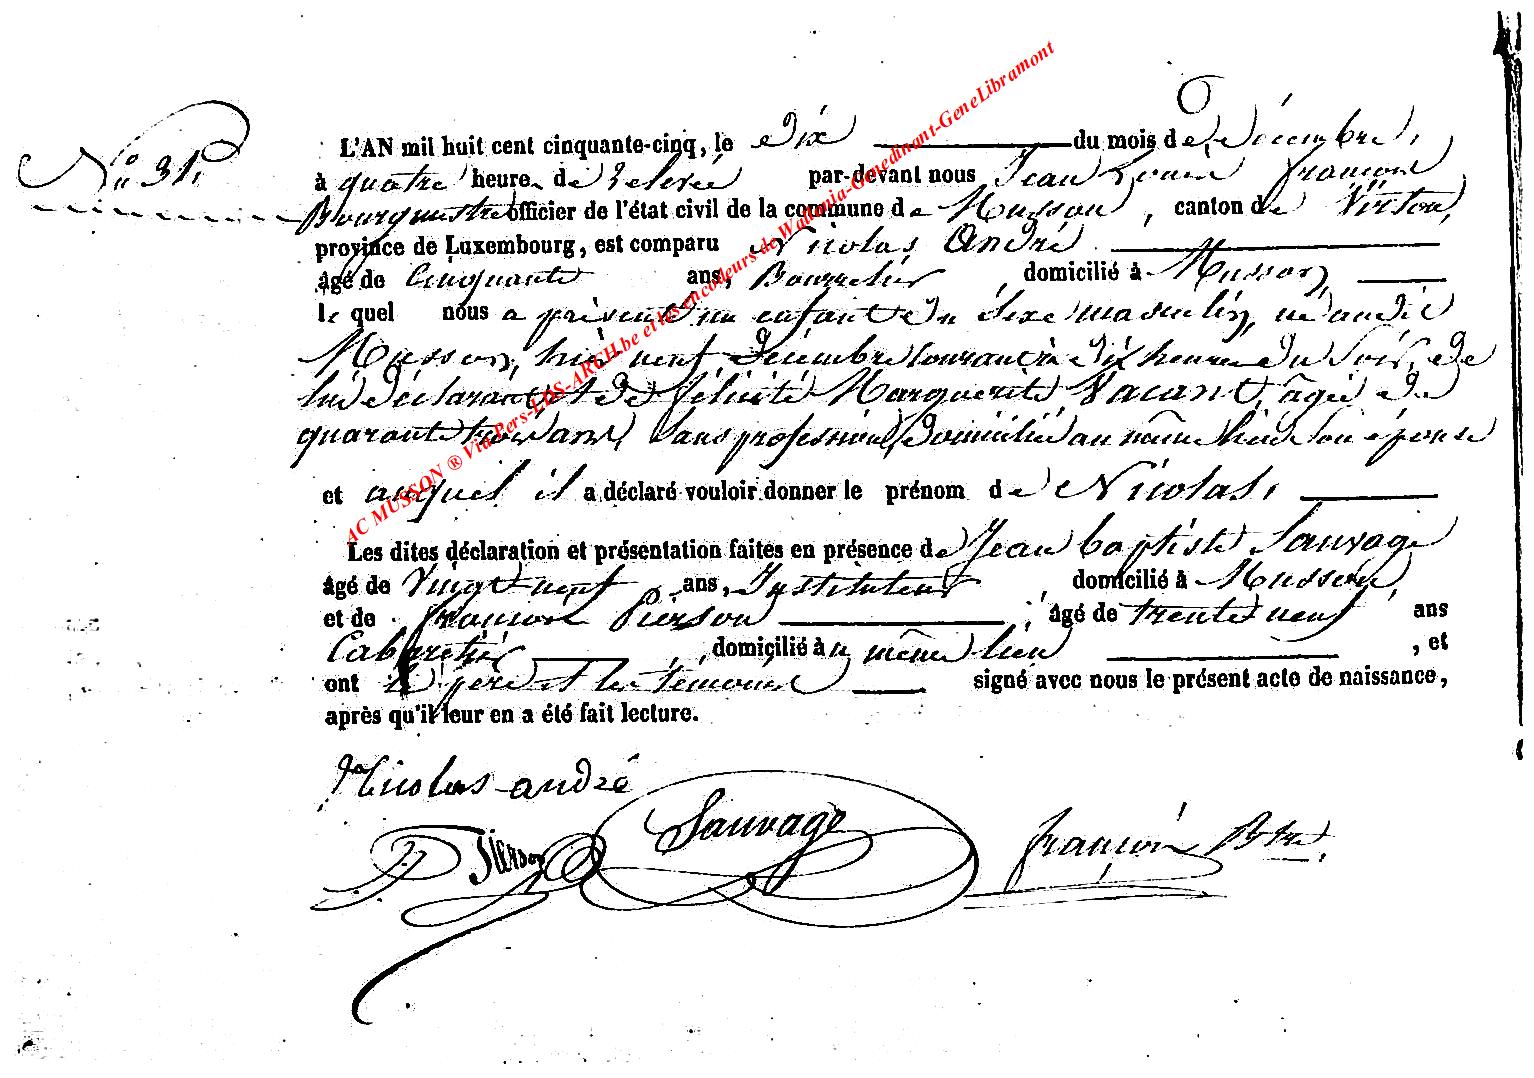 N° 31.
L'AN mil huit cent cinquante-cinq, le Dix du mois de Décembre,
à quatre heure de relevée par-devant nous Jean Louis François
Bourgmestre officier de l'état civil de la commune de Musson, canton de Virton,
province de Luxembourg, est comparu Nicolas André
âgé de Cinquante ans, Bourrelier, domicilié à Musson,
le quel nous a présenté un enfant du sexe masculin, né audit
Musson, hier neuf Décembre courant à dix heures du soir, de
lui déclarant et de Félicité Marguerite Vacant, âgée de
quarante trois ans, sans profession, domiciliée au même lieu son épouse
et auquel il a déclaré vouloir donner le prénom de Nicolas,
Les dites déclaration et présentation faites en présence de Jean Baptiste Sauvage
âgé de Vingt neuf ans, Instituteur domicilié à Musson,
et de François Pierson, âgé de trente neuf ans
Cabaretier, domicilié au même lieu, et
ont le père et les témoins signé avec nous le présent acte de naissance,
après qu'il leur en a été fait lecture.
Nicolas andré
Pierson Sauvage françois Btre
AC MUSSON ® Via Pers-LDS-ARGH.be et les encodeurs de Wallonia-Genedinant-GeneLibramont